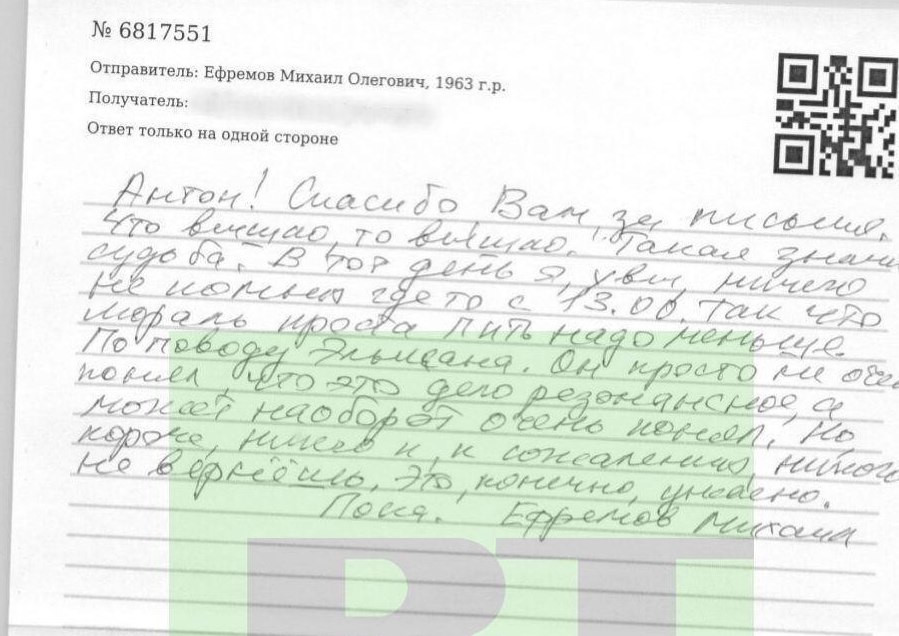 № 6817551
Отправитель: Ефремов Михаил Олегович, 1963 г.р.
Получатель:
Ответ только на одной стороне
Антон! Спасибо Вам за письма.
Что вышло, то вышло. Такая знать
судьба. В тот день я, увы, ничего
не помню где то с 13.00. Так что
мораль проста пить надо меньше.
По поводу Эльмана. Он просто не очен
понял, что это дело резонансное, а
может наоборот очень понял. Но,
короче, ничего и, к сожалению, никого
не вернёшь. Это, конечно, ужасно.
Пока. Ефремов Михаил
РТ